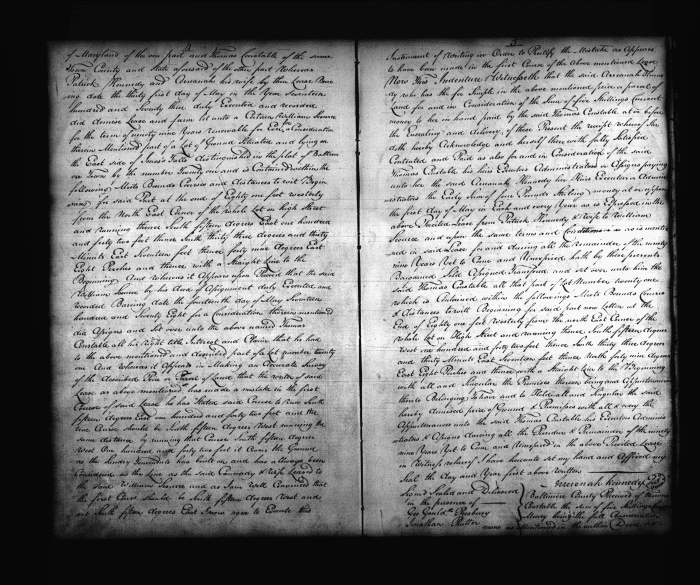 of Maryland of the one part and Thomas Constable of the same
Town County and State aforesaid of the other part Whereas
Patrick Kennedy and Ameriah his wife by their Lease Bear
ing date the thirty first day of May in the Year Seventeen
hundred and Seventy three duly Executed and recorded
did demise Lease and farm let unto a Certain William Source
for the term of ninety nine Years renewable for Ever, a Consideration
therein Mentioned part of a Lot of Ground Situate and lying on
the East side of Jones's Falls distinguished in the plot of Baltim
ore Town by the number Twenty one and is Contained within the
following Meets Bounds Courses and distances to wit Begin
ning for said Part at the end of Eighty one foot westerly
from the North East Corner of the Whole Lot on high Street
and running thence South fifteen degrees East one hundred
and forty two foot thence South thirty three degrees and thirty
Minutes East Seventeen feet thence forty nine degrees East
Eight Perches and thence with a Straight Line to the
Beginning And whereas it Appears upon Record that the said
William Source by his deed of Assignment duly Executed and
recorded Bearing date the fourteenth day of May Seventeen
hundred and Seventy Eight for a Consideration therein mentioned
did Assign and Set over unto the above named Thomas
Constable all his Right title Interest and Claim that he had
to the above mentioned and described part of a Lot number twenty
one And whereas it Appears in Making an Accurate Survey
of the described Piece or Parcel of Land that the writer of said
Lease as above mentioned has made a mistake in the first
Course of said Lease he has Stated said Course to Run South
fifteen degrees East one hundred and forty two feet and the
true Course should be South fifteen degrees West running the
same distance by running that Course South fifteen degrees
West One hundred and forty two feet it Comes the Ground
as the said has built on and has always been
Considered as the Line as the said Kennedy & Wife Leased to
the said William Source and as I am well Convinced that
the first Course should be South fifteen degrees West and
not South fifteen degrees East I now agree to Execute this
Instrument of Writing in Order to Rectify the Mistake as Appears
to have been made in the first Course of the Above mentioned Lease
Now this Indenture Witnesseth that the said Ameriah Kenne
dy who has the fee Simple in the above mentioned piece or parcel of
Land for and in Consideration of the Sum of five Shillings Current
money to her in hand paid by the said Thomas Constable at or before
the Ensealing and delivery of these Present the receipt whereof She
doth hereby Acknowledge and herself there with fully Satisfied
Contented and Paid as also for and in Consideration of the said
Thomas Constable his heirs Executors Administrators or Assigns paying
unto her the said Ameriah Kennedy her Heirs Executors or Admin
istrators the Yearly Sum of four Pounds Sterling money at or upon
the first day of May in Each and every Year as is Expressed in the
above Recited Lease from Patrick Kennedy & Wife to William
Source and upon the same terms and Conditions as is menti
oned in said Lease for and during all the Remainder of the ninety
nine Years Yet to Come and Unexpired hath by these presents
Bargained Sold Assigned Transfered and set over unto him the
said Thomas Constable all that part of Lot Number twenty one
which is Contained within the followings Meets Bounds Courses
& distances to wit Beginning for said part now Letten at the
End of Eighty one foot Westerly from the north East Corner of the
whole Lot on High Street and running thence South fifteen degrees
West one hundred and forty two feet thence South thirty three degrees
and thirty Minutes East Seventeen feet thence North forty nine degrees
East Eight Perches and thence with a Straight Line to the Beginning
with all and Singular the Premises thereon being and Appurtenances
thereto Belonging to have and to Hold all and Singular the said
hereby demised piece of Ground & Premises with all & every the
Appurtenances unto the said Thomas Constable his Executors Adminis
trators & Assigns during all the Residue & Remainder of the ninety
nine Years Yet to Come and Unexpired in the above Recited Lease
in Witness whereof I have hereunto set my hand and Affixed my
Seal the day and Year first above written
Signed Sealed and Delivered
in the presence of
Geo Gould Presbury
Jonathan Rutter
Ameriah Kennedy
Baltimore County Received of Thomas
Constable the Sum of five Shillings Current
Money being the full Consideration
mentioned in the within Deed